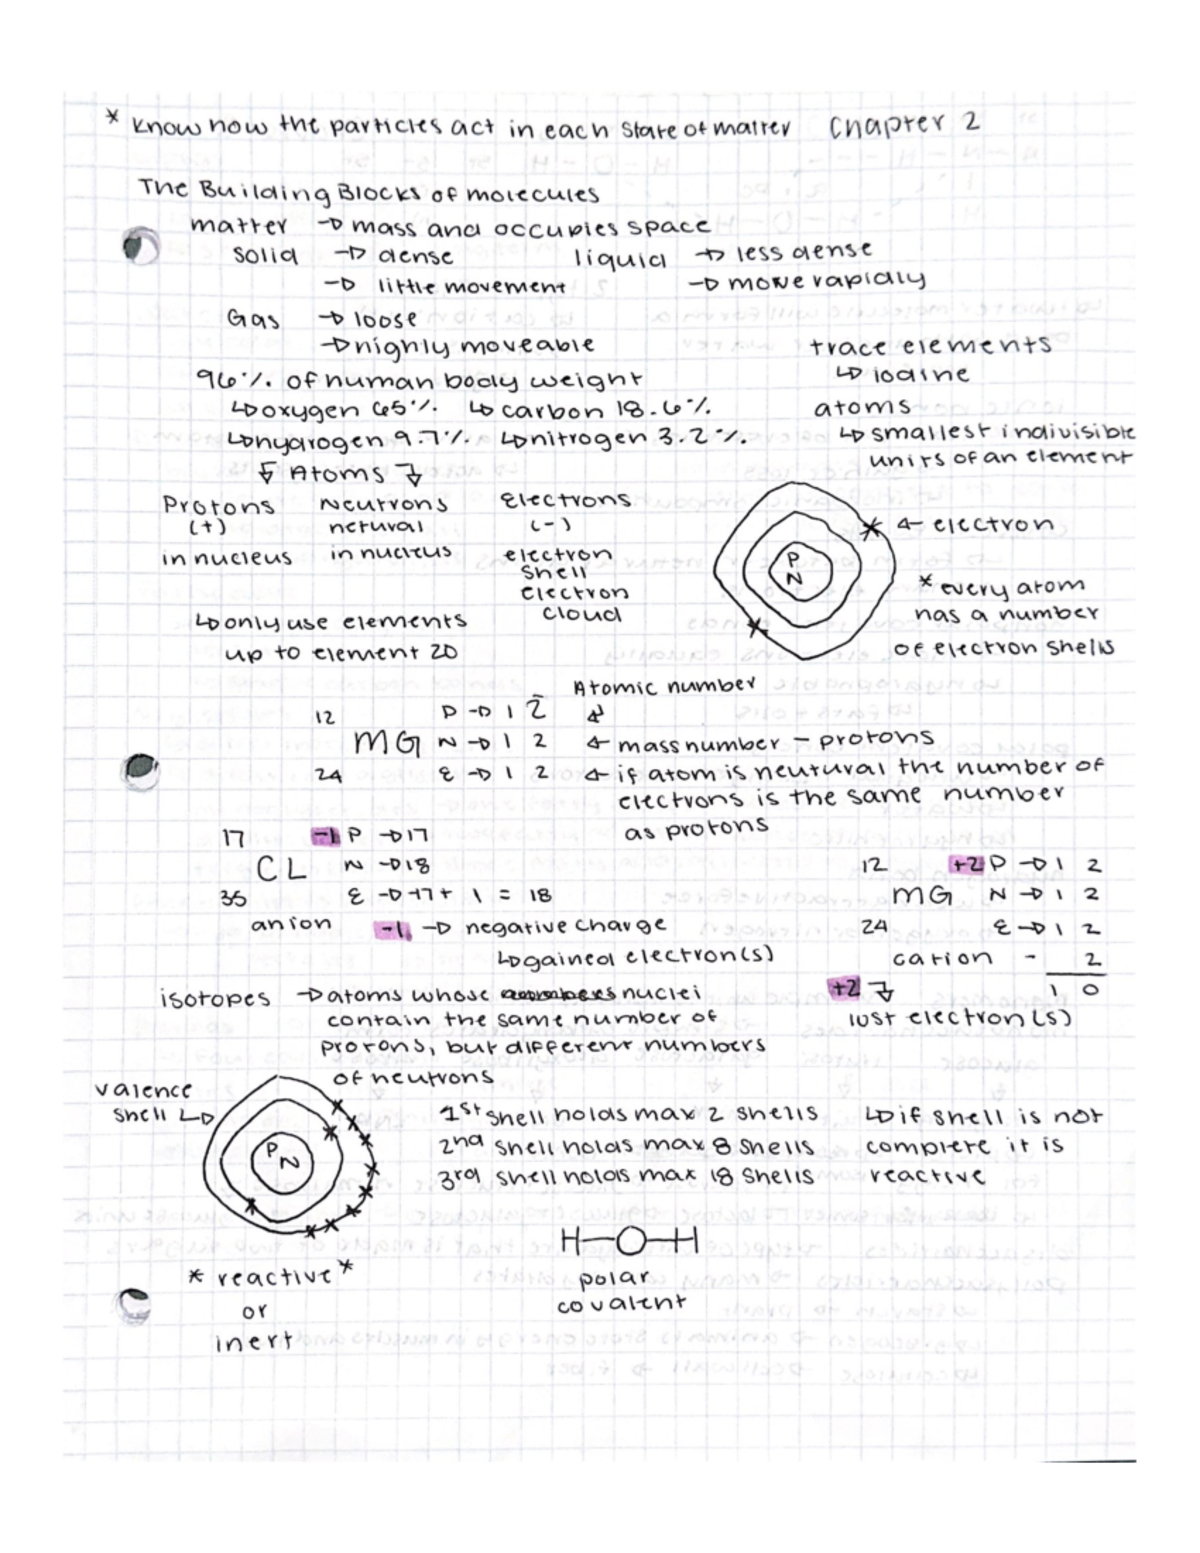 * Know how the particles act in each state of matter Chapter 2
The Building Blocks of molecules
matter → mass and occupies space
solid → dense liquid → less dense
→ little movement → move rapidly
Gas → loose
→ highly moveable
trace elements
↳ iodine
96% of human body weight
↳ oxygen 65% ↳ carbon 18.6%
↳ hydrogen 9.7% ↳ nitrogen 3.2%
atoms
↳ smallest indivisible
units of an element
↓ Atoms ↓
Protons Neutrons Electrons
(+) netural (-)
in nucleus in nucleus electron
shell
electron
cloud
↳ only use elements
up to element 20
P
N
← electron
* every atom
has a number
of electron shells
Atomic number
12 P → 12 ↲
MG N → 12 ← mass number - protons
24 E → 12 ← if atom is neutural the number of
electrons is the same number
as protons
17 -1 P → 17
CL N → 18
35 E → 17 + 1 = 18
anion -1 → negative charge
↳ gained electron(s)
12 +2 P → 12
MG N → 12
24 E → 12
cation - 2
10
+2 ↓
lost electron(s)
isotopes → atoms whose nuclei
contain the same number of
protons, but different numbers
of neutrons
valence
shell ↳
P
N
* reactive *
or
inert
1st shell holds max 2 shells
2nd shell holds max 8 shells
3rd shell holds max 18 shells
↳ if shell is not
complete it is
reactive
H-O-H
polar
covalent